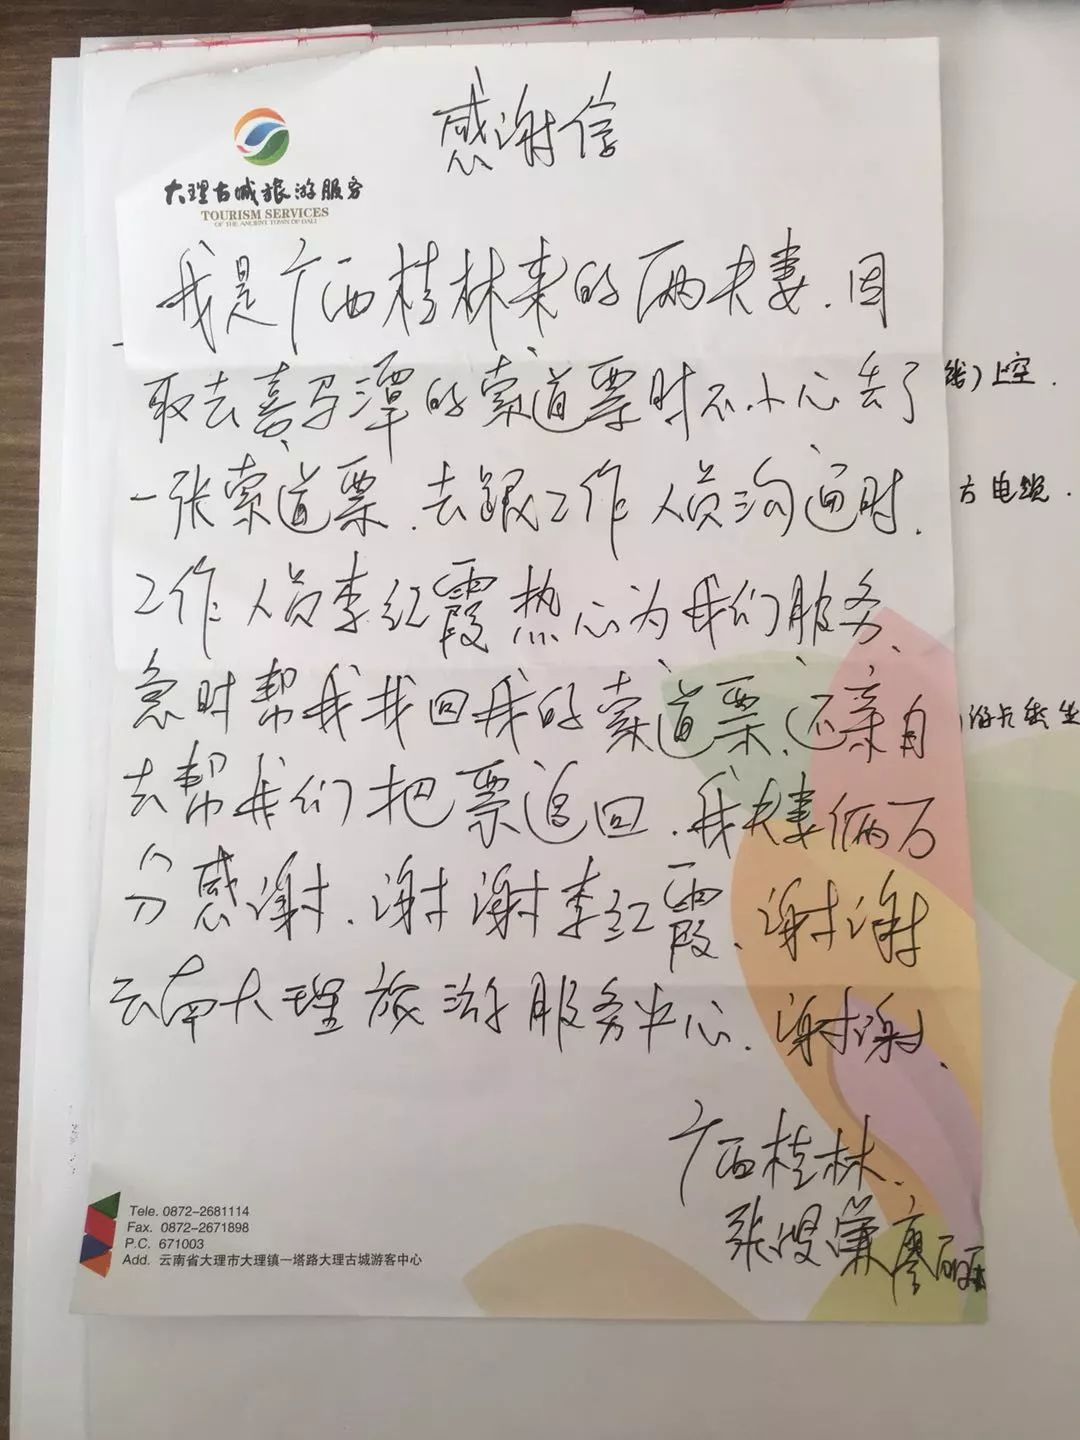 感谢信
大理古城旅游服务
TOURISM SERVICES
OF THE ANCIENT TOWN OF DALI
我是广西桂林来的俩夫妻.因
取去喜马潭的索道票时不小心丢了
一张索道票.去跟工作人员沟通时.
工作人员李红霞热心为我们服务、
急时帮我找回我的索道票、还亲自
去帮我们把票追回.我夫妻俩万
分感谢.谢谢李红霞.谢谢
云南大理旅游服务中心.谢谢.
广西桂林.
张
廖丽
上空.
方电缆.
Tele. 0872-2681114
Fax. 0872-2671898
P.C. 671003
Add. 云南省大理市大理镇一塔路大理古城游客中心